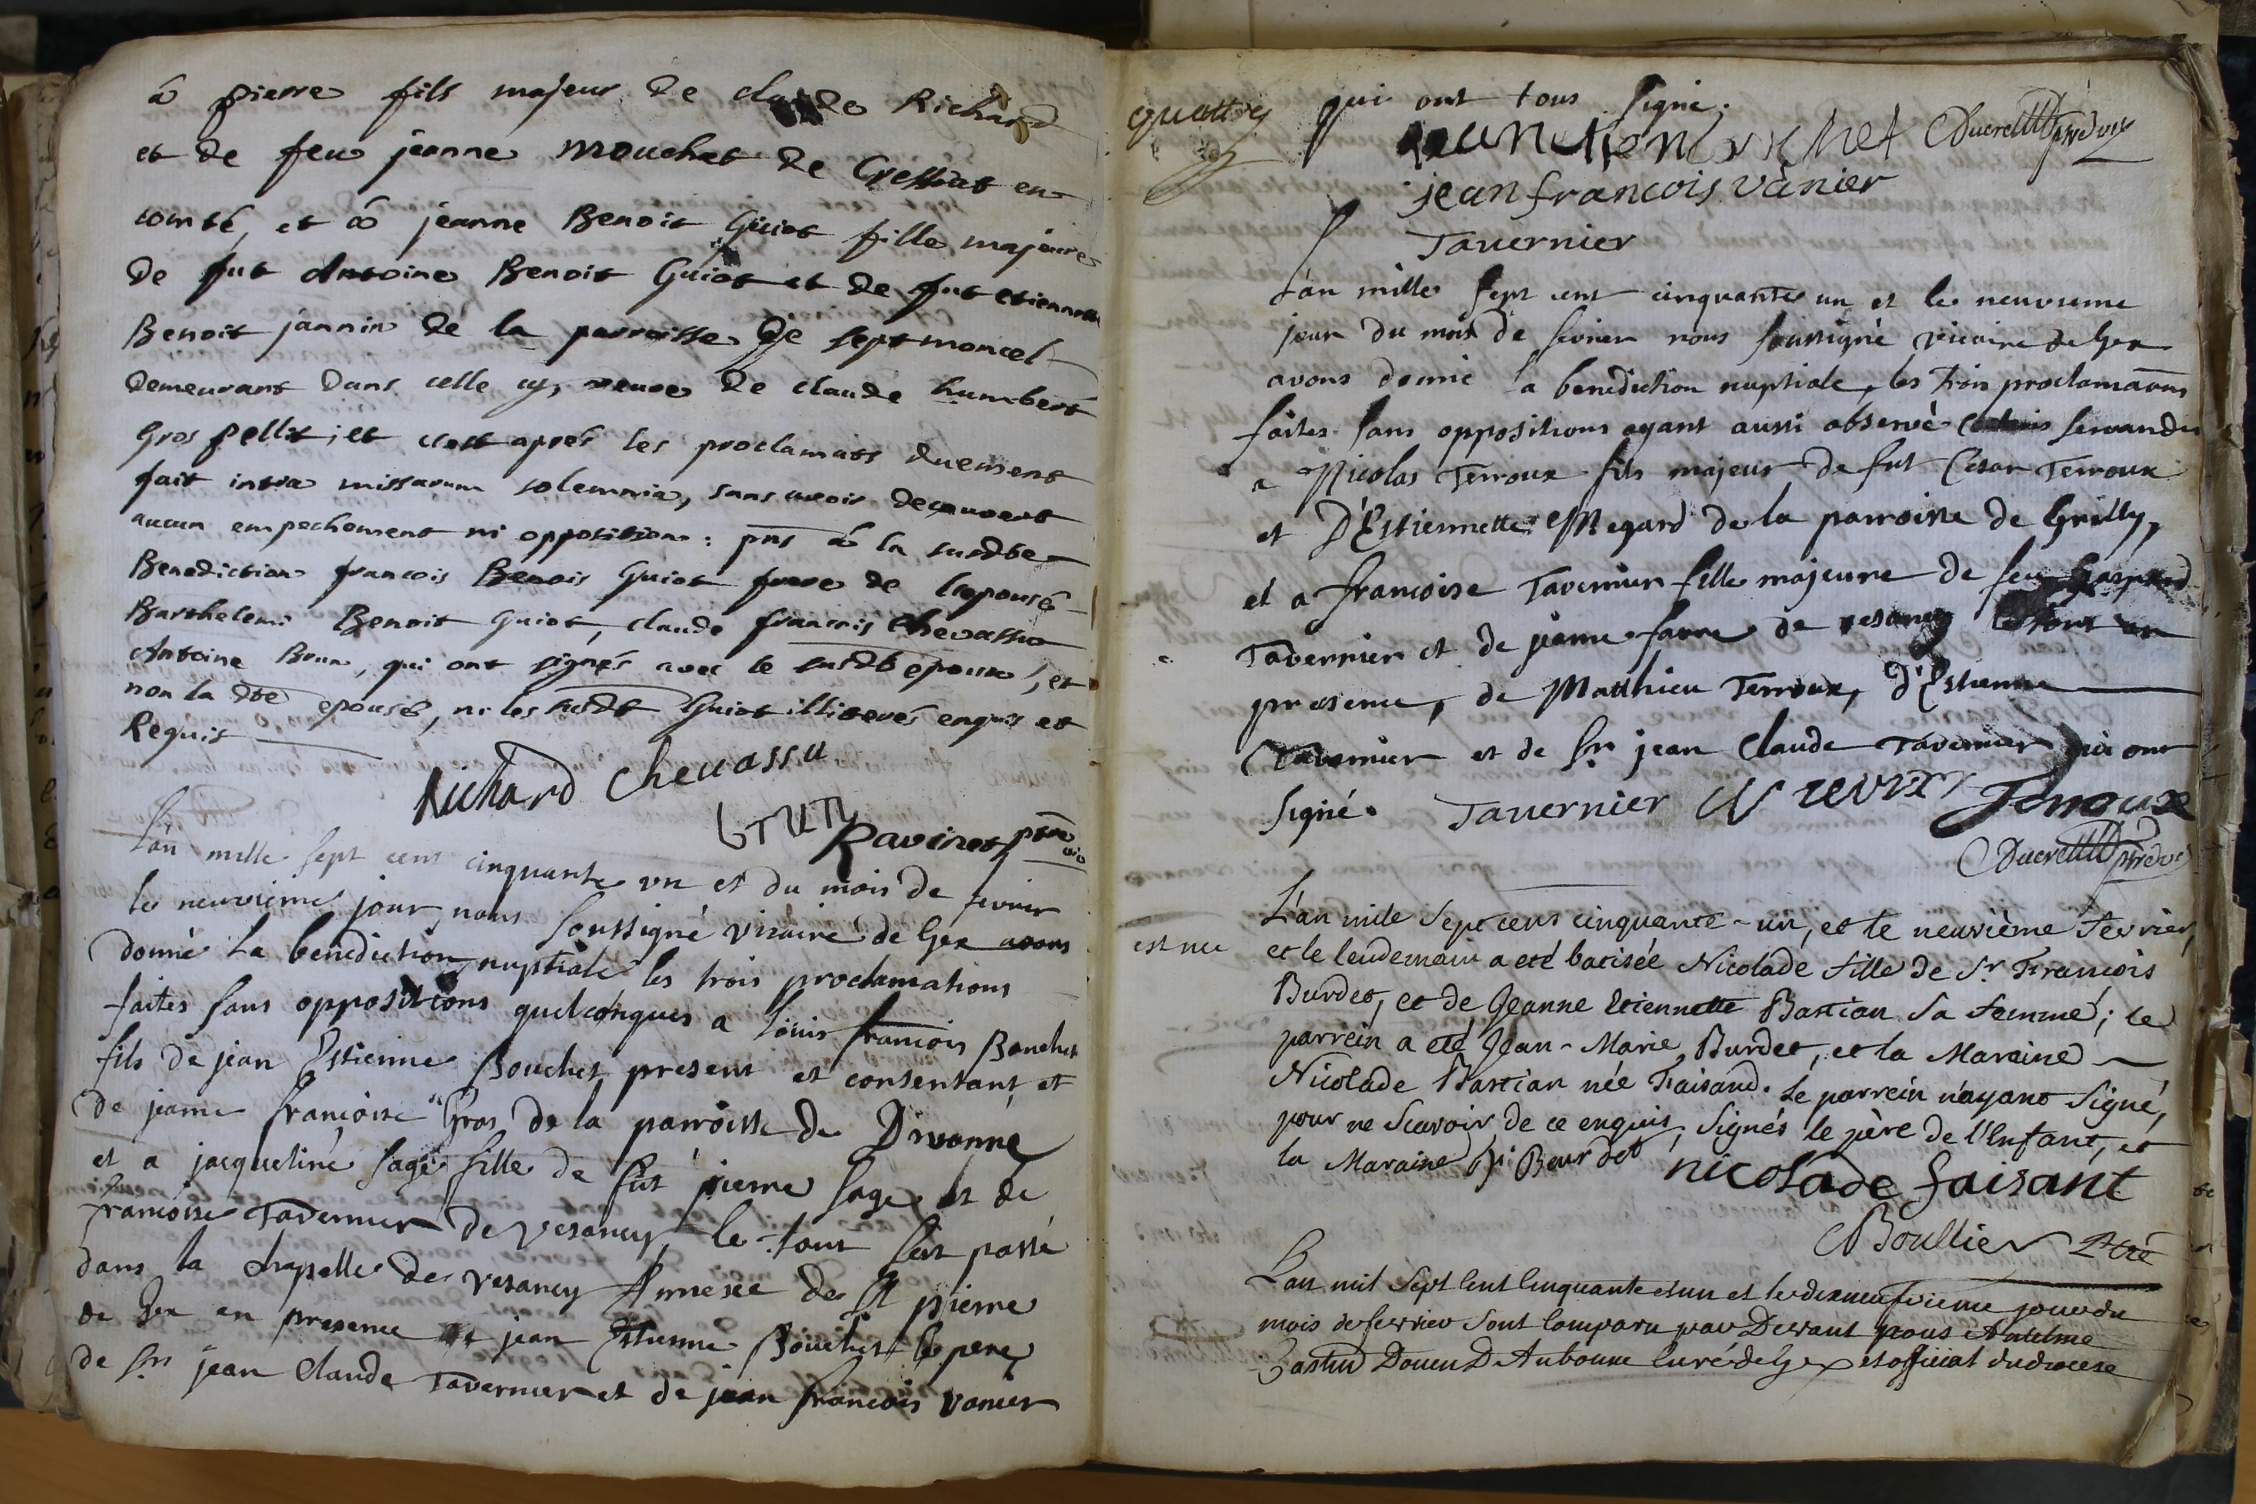 à pierre fils majeur de claude Richard
et de feue jeanne mouchet de Cressiat en
comté, et à jeanne Benoit Guiot fille majeure
de fut Antoine Benoit Guiot et de fut etiennette
Benoit jannin de la parroisse de sept moncel
demeurant dans celle cy, veuve de claude humbert
Gros pellit; et c'est aprés les proclamats duement
fait intra missarum solemnia, sans avoir decouvert
aucun empechement ni opposition: pnts à la susdte
Benediction francois Benoit Guiot frere de l'epousé
Barthelemi Benoit Guiot, claude francois Chevassu
Antoine Brun, qui ont signés avec le susdt epoux, et
non la dte epousé, ni les susdts Guiot illiterés enquis et
Requis
Richard Chevassu
brun
Ravinet ptre vic
L'an mille sept cent cinquante un et du mois de fevrier
le neuvieme jour, nous soussigné vicaire de Gex avons
donné la benediction nuptiale les trois proclamations
faites sans oppositions quelconques a louis francois Bouchet
fils de jean Estienne Bouchet present et consentant, et
de jeanne françoise Gros de la parroisse de Divonne
et a jacqueline sage fille de fut pierre sage et de
françoise Tavernier de vesancy le tout s'est passé
dans la chapelle de vesancy Annexée de St pierre
de Gex en presence de jean Estienne Bouchet le pere
de Sr jean Claude Tavernier et de jean francois vanier
quattre
qui ont tous signé.
jean tien bouchet Ducret ptre vic
jean francois vanier
Tavernier
L'an mille sept cent cinquante un et le neuvieme
jour du mois de fevrier nous soussigné vicaire de Gex
avons donné la benediction nuptiale, les trois proclamations
faites sans oppositions ayant aussi observé servandis
a Nicolas Terroux fils majeur de fut Cesar Terroux
et D'Estiennette Megard de la parroisse de Grilly,
et a françoise Tavernier fille majeure de feu Gaspard
Tavernier et de jeanne favre de vesancy le tout en
presence, de Matthieu Terroux, d'Estienne
Tavernier et de Sr jean Claude Tavernier qui ont
signé. Tavernier Terroux
Ducret ptre vic
L'an mile sept cens cinquante-un, et le neuvième fevrier,
est née et le lendemain a eté batisée Nicolade fille de Sr. François
Burdet, et de Jeanne Etiennette Bastian sa femme; le
parrein a eté Jean-Marie Burdet, et la Maraine
Nicolade Bastian née Faisand. Le parrein n'ayant signé,
pour ne scavoir de ce enquis, signés le père de l'Enfant, et
la Maraine. f: Beurdet nicolade faisant
Boullier Ptré
L'an mil sept cent cinquante et un et le dixneufvieme jour du
mois de fevrier sont comparu par Devant nous Antelme
Castin Doyen D'Aubonne curé de Gex et official du diocese